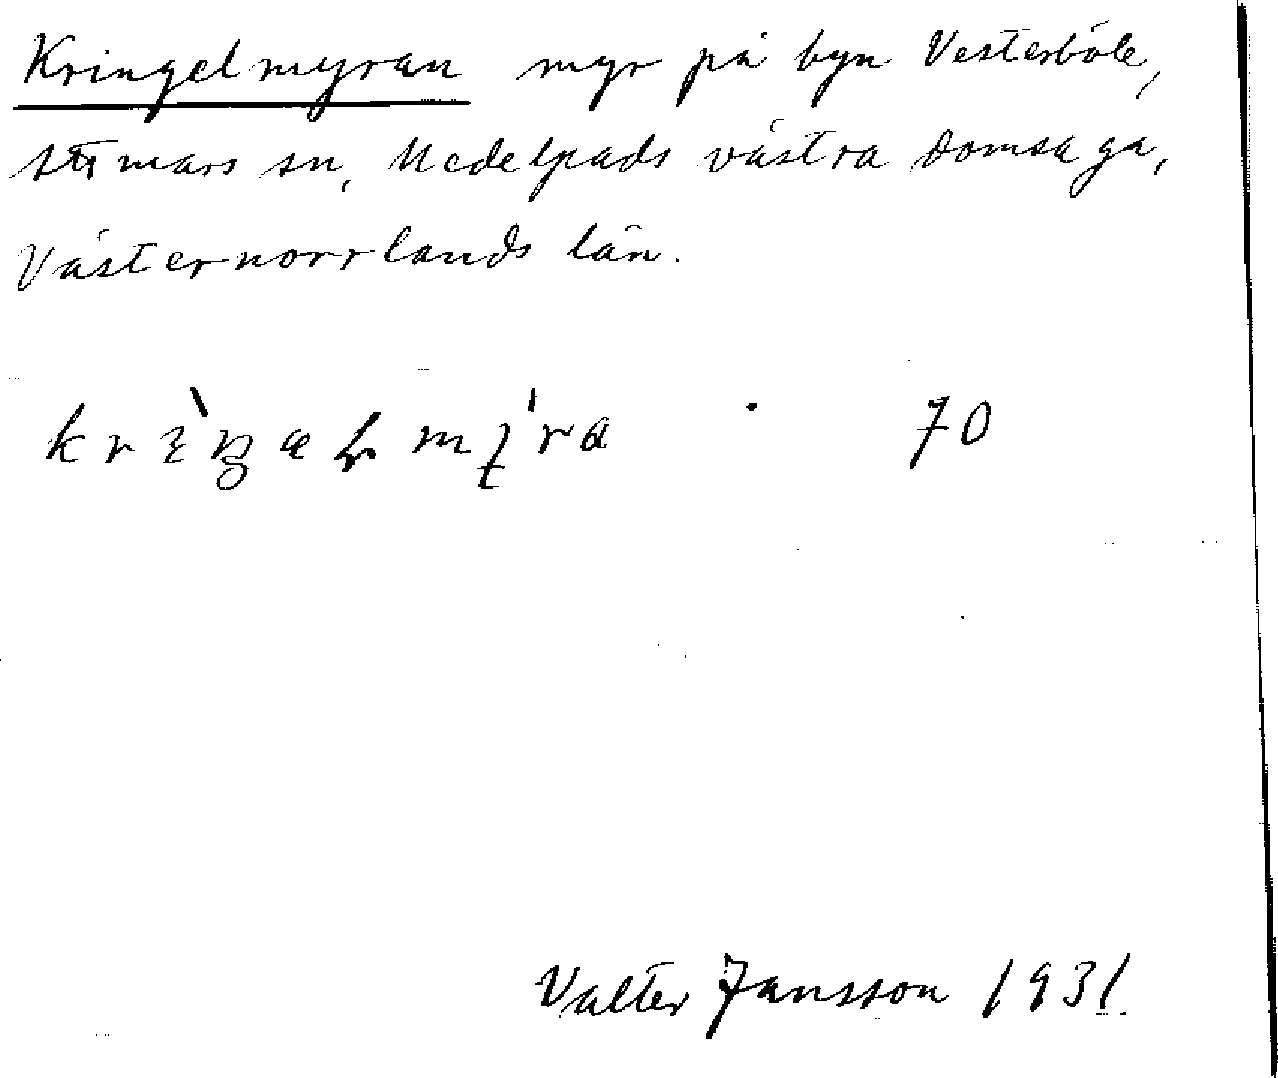 Kringelmyran myr på byn Vesterböle,
mars sn, Medelpads västra domsaga,
Västernorrlands län.
70
Valter Jansson 1931.